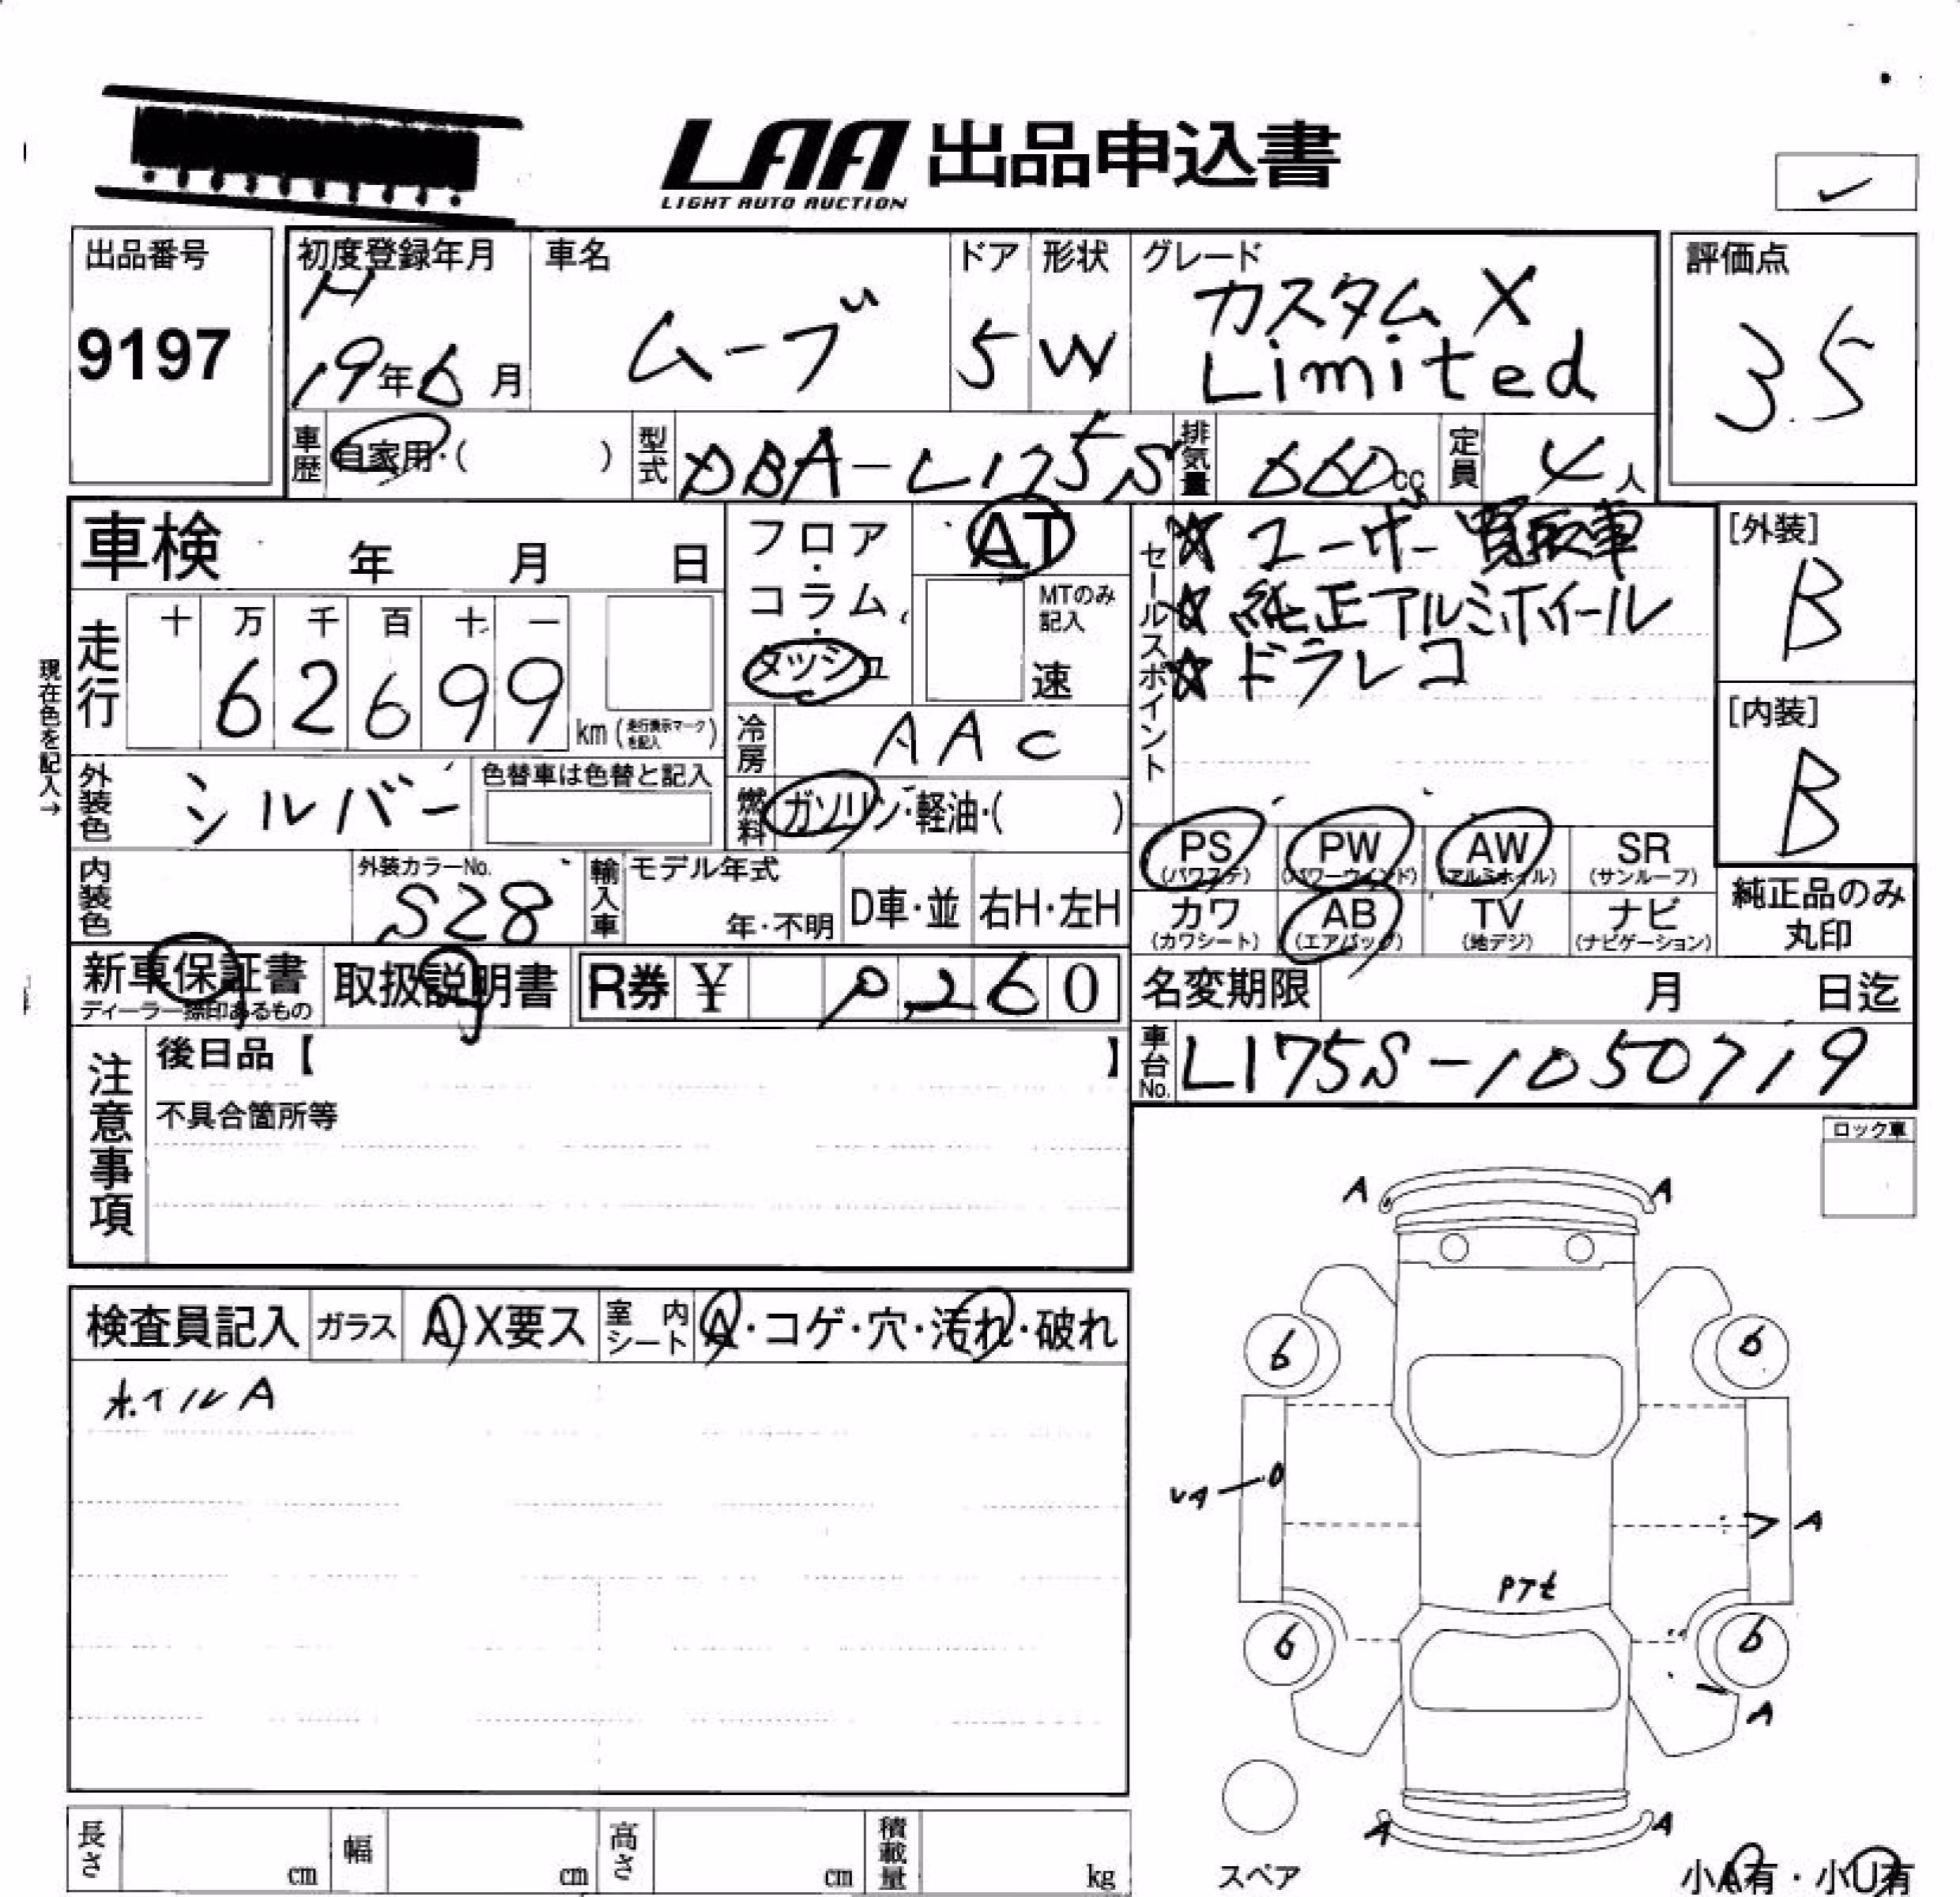 LAA 出品申込書
LIGHT AUTO AUCTION
出品番号
9197
初度登録年月
H
19年6月
車名
ムーブ
ドア
5
形状
W
グレード
カスタム X
Limited
評価点
3.5
車歴
自家用・( )
型式
DBA-L175S
排気量
660cc
定員
4人
車検 年 月 日
走行
十 万 千 百 十 一
6 2 6 9 9
km(走行表示マークを記入)
現在色を記入→
外装色
シルバー
色替車は色替と記入
内装色
外装カラーNo.
S28
輸入車
モデル年式
年・不明
D車・並
右H・左H
フロア
・
コラム
・
ダッシュ
AT
MTのみ
記入
速
冷房
AAC
燃料
ガソリン・軽油・( )
セールスポイント
☆ ユーザー買取車
☆ 純正アルミホイール
☆ ドラレコ
[外装]
B
[内装]
B
PS
(パワステ)
PW
(パワーウインド)
AW
(アルミホイル)
SR
(サンルーフ)
カワ
(カワシート)
AB
(エアバッグ)
TV
(地デジ)
ナビ
(ナビゲーション)
純正品のみ
丸印
新車保証書
ディーラー捺印あるもの
取扱説明書
R券 ¥ 260
名変期限 月 日迄
車台No.
L175S-1050719
注意事項
後日品【 】
不具合箇所等
ロック車
検査員記入
ガラス
A X要ス
室内シート
A・コゲ・穴・汚れ・破れ
ホイルA
A A
6 6
A
PTt
6 6
A
A A
スペア
小A有・小U有
長さ cm
幅 cm
高さ cm
積載量 kg